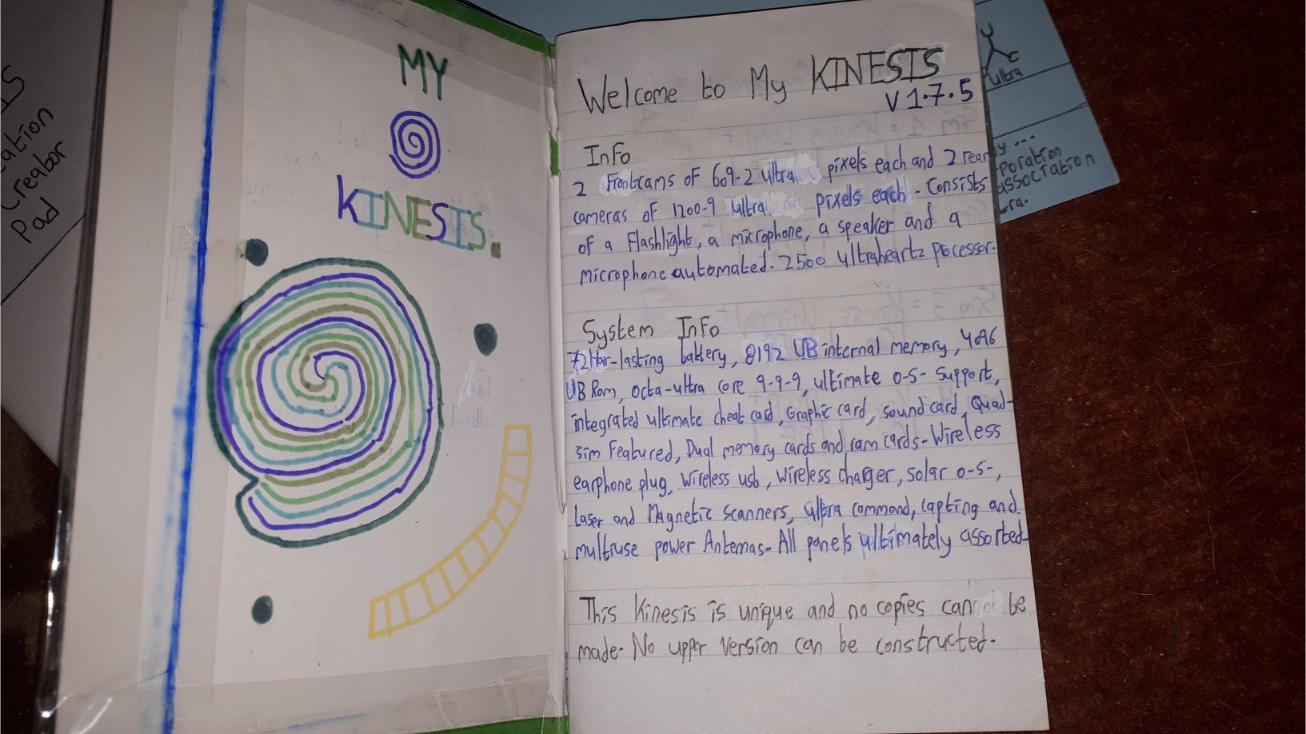 MY
KINESIS.
Welcome to My KINESIS
V 1.7.5
Info
2 Frontcams of 609.2 ultra pixels each and 2 rear
cameras of 1200.9 ultra pixels each. Consists
of a Flashlight, a microphone, a speaker and a
microphone automated. 2500 ultraheartz pocessor.
System Info
72Hor-lasting battery, 8192 UB internal memory, 4096
UB Rom, octa-ultra core 9-9-9, ultimate o-s- support,
integrated ultimate cheat card, Graphic card, sound card, Quad-
sim Featured, Dual memory cards and ram cards. Wireless
earphone plug, wireless usb, wireless charger, solar o-s-,
laser and Magnetic scanners, ultra command, lapting and
multiuse power Antemas. All panels ultimately assorted.
This Kinesis is unique and no copies can be
made. No upper version can be constructed.
ation
Creator
Pad
ultra
poration
association